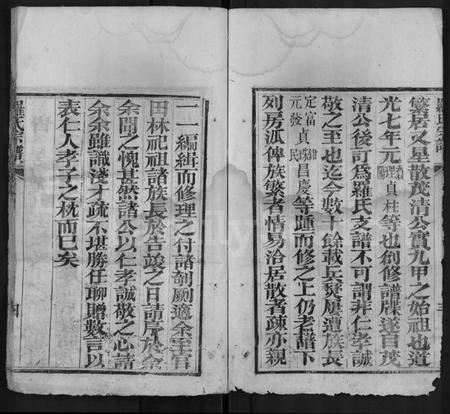 繁居火星散茂清公實九甲之始祖也道
光七年元貞柱等也創修譜牒遂自茂
清公後訂為羅氏支譜不可謂非仁孝誠
敬之至也迄今數十餘載兵燹屢遭族長
定富貞珠昌慶等踵而修之上仍老譜下
元發民
列房派俾族繁者情易洽居散者疎亦親
羅氏宗譜
一一編緝而修理之付諸剞劂適余至官
田林祀祖諸族長於告竣之日請序於余
余聞之愧甚然諸公以仁孝誠敬之心請
余余雖識淺才疏不堪勝任聊贈數言以
表仁人孝子之忱而已矣
羅氏宗譜